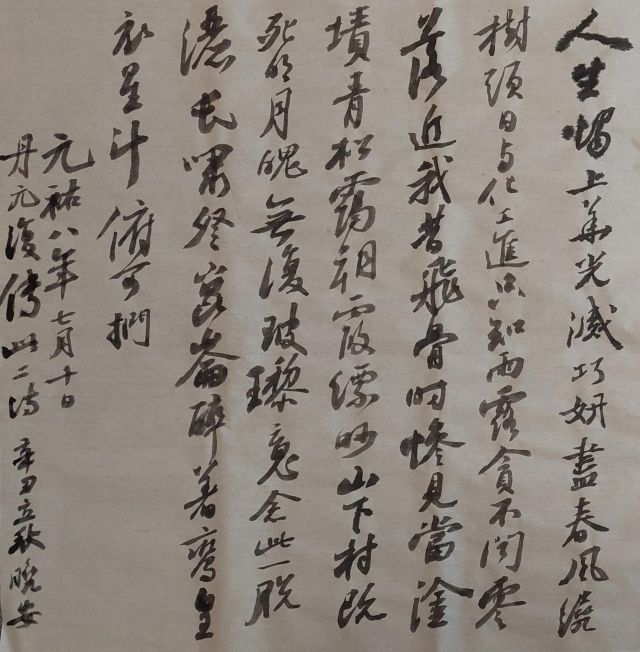 人生燭上華光滅巧妍盡春風繞
樹頭日與化工進只知雨露貪不聞零
落近我昔飛骨時慘見當塗
墳青松靄朝霞縹眇山下村既
死明月魄無復玻瓈魂念此一脫
灑長嘯登崑崙醉著鸞皇
衣星斗俯可捫
元祐八年七月十日
丹元復傳此二詩 辛丑立秋